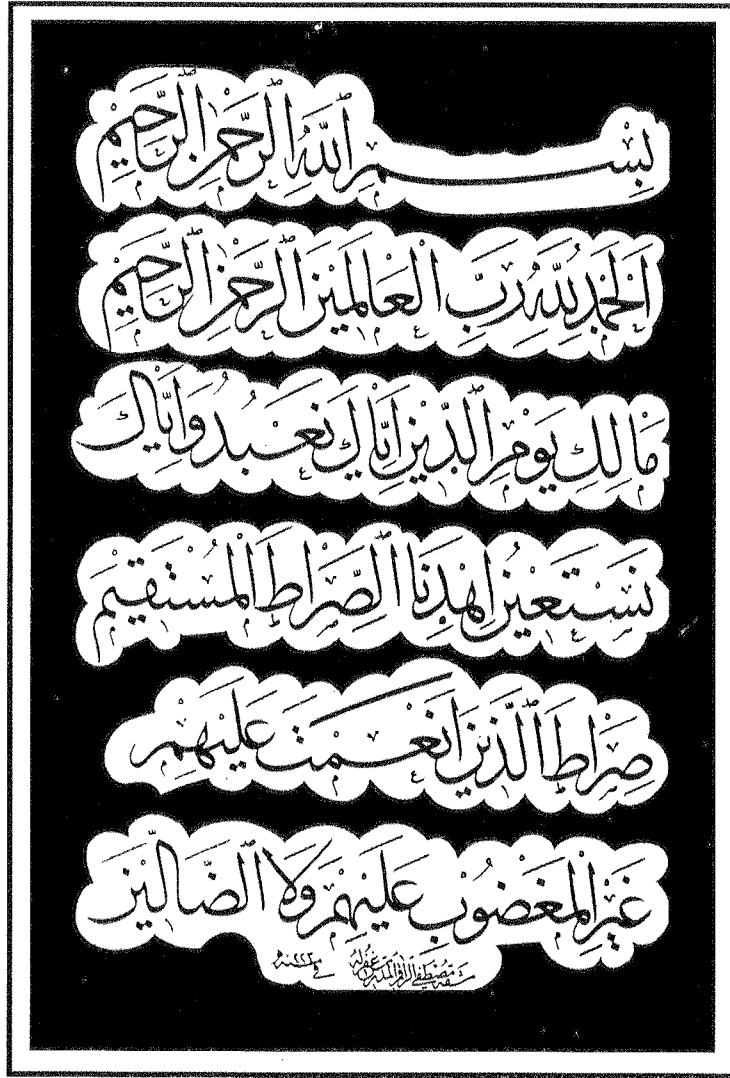 بِسْمِ ٱللّٰهِ ٱلرَّحْمٰنِ ٱلرَّحِيْمِ
اَلْحَمْدُ لِلّٰهِ رَبِّ الْعَالَمِيْنَ ٱلرَّحْمٰنِ ٱلرَّحِيْمِ
مَالِكِ يَوْمِ ٱلدِّيْنِ اِيَّاكَ نَعْبُدُ وَاِيَّاكَ
نَسْتَعِيْنُ اِهْدِنَا ٱلصِّرَاطَ الْمُسْتَقِيْمَ
صِرَاطَ ٱلَّذِيْنَ اَنْعَمْتَ عَلَيْهِمْ
غَيْرِ الْمَغْضُوْبِ عَلَيْهِمْ وَلَا ٱلضَّالِّيْنَ
مصطفى الراقم غفر له